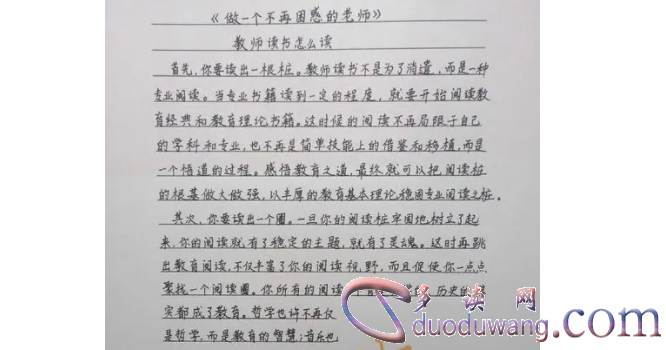 《做一个不再困惑的老师》
教师读书怎么读
首先，你要读出一根桩。教师读书不是为了消遣，而是一种
专业阅读。当专业书籍读到一定的程度，就要开始阅读教
育经典和教育理论书籍。这时候的阅读不再局限于自己
的学科和专业，也不再是简单技能上的借鉴和移植，而是
一个悟道的过程。感悟教育之道，最终就可以把阅读桩
的根基做大做强，以丰厚的教育基本理论稳固专业阅读之桩。
其次，你要读出一个圈。一旦你的阅读桩牢固地树立了起
来，你的阅读就有了稳定的主题，就有了灵魂。这时再跳
出教育阅读，不仅丰富了你的阅读视野，而且促使你一点点
聚找一个阅读圈。你所有的阅读 历史的
实都成了教育。哲学也许不再仅
是哲学，而是教育的智慧；音乐也
多读网
duoduwang.com